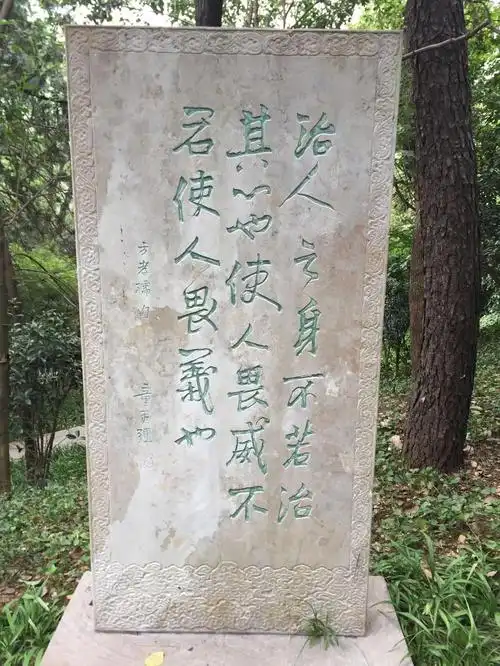 治人之身不若治
其心也使人畏威不
若使人畏義也
方孝孺句